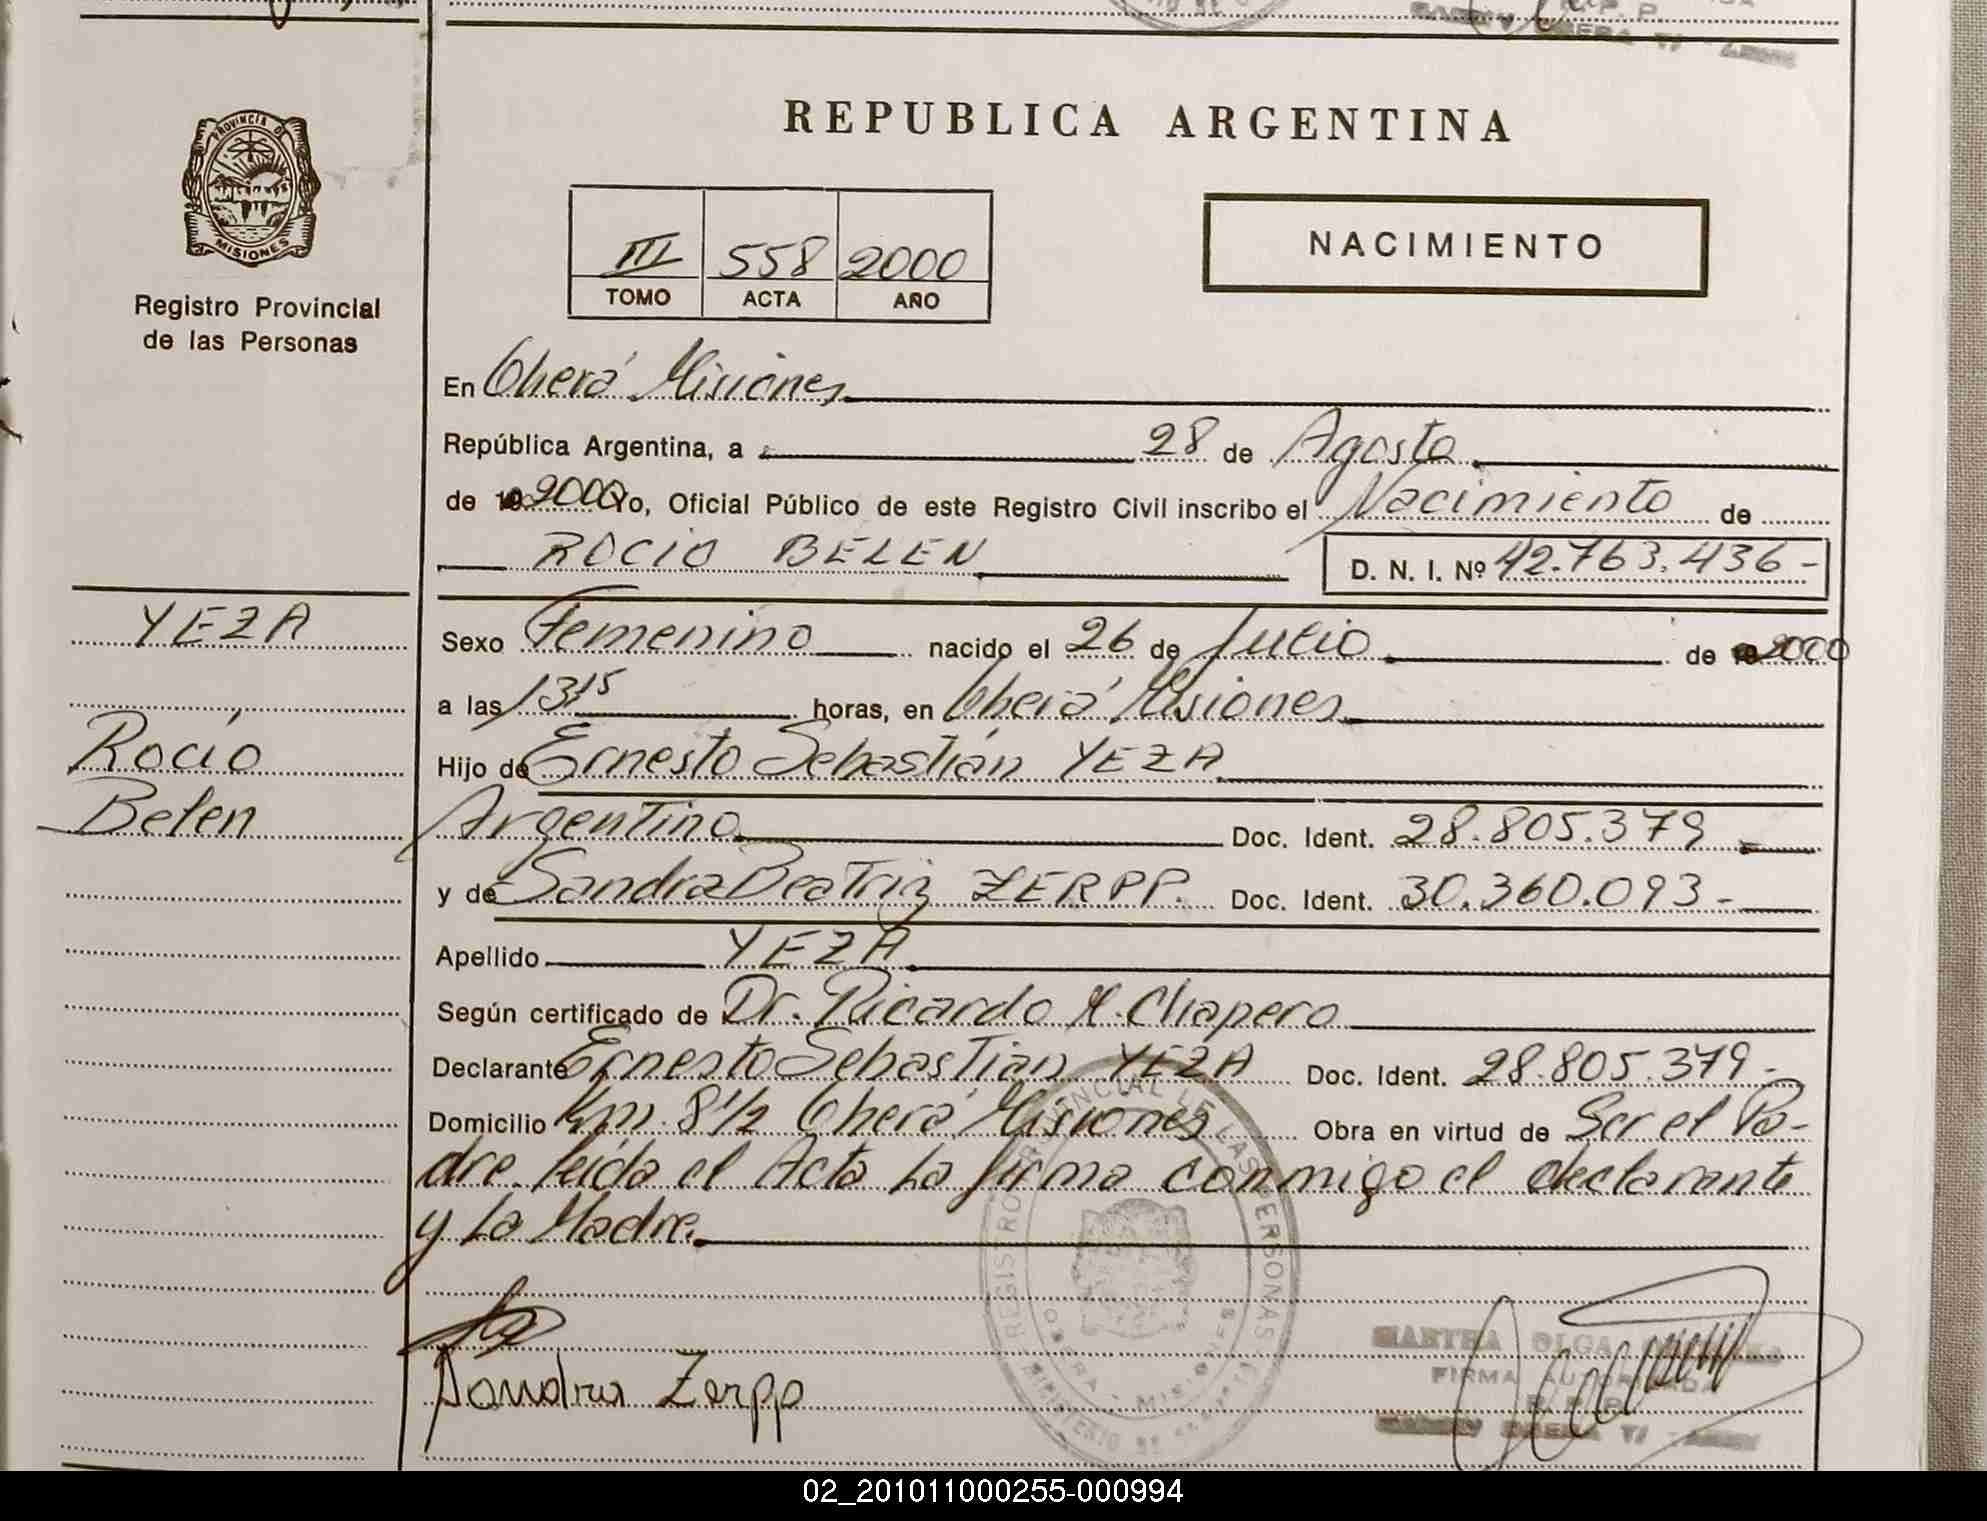 REPUBLICA ARGENTINA
PROVINCIA DE MISIONES
Registro Provincial
de las Personas
III 558 2000
TOMO ACTA AÑO
NACIMIENTO
En Oberá Misiones
República Argentina, a 28 de Agosto
de 2000 Yo, Oficial Público de este Registro Civil inscribo el Nacimiento de
ROCIO BELEN D. N. I. Nº 42.763.436-
YEZA
Rocío
Belen
Sexo Femenino nacido el 26 de Julio de 2000
a las 13 15 horas, en Oberá Misiones
Hijo de Ernesto Sebastián YEZA
Argentino Doc. Ident. 28.805.379
y de Sandra Beatriz ZERPP. Doc. Ident. 30.360.093-
Apellido YEZA
Según certificado de Dr. Ricardo M. Chapero
Declarante Ernesto Sebastian YEZA Doc. Ident. 28.805.379-
Domicilio Km. 8 1/2 Oberá Misiones Obra en virtud de Ser el Pa-
dre. leída el Acta la firma conmigo el declarante
y la Madre.
REGISTRO PROVINCIAL DE LAS PERSONAS
OBERA - MISIONES
MINISTERIO DE
Sandra Zerpp
MARTHA OLGA
FIRMA AUTORIZADA
R. P. P.
OBERA
02_201011000255-000994